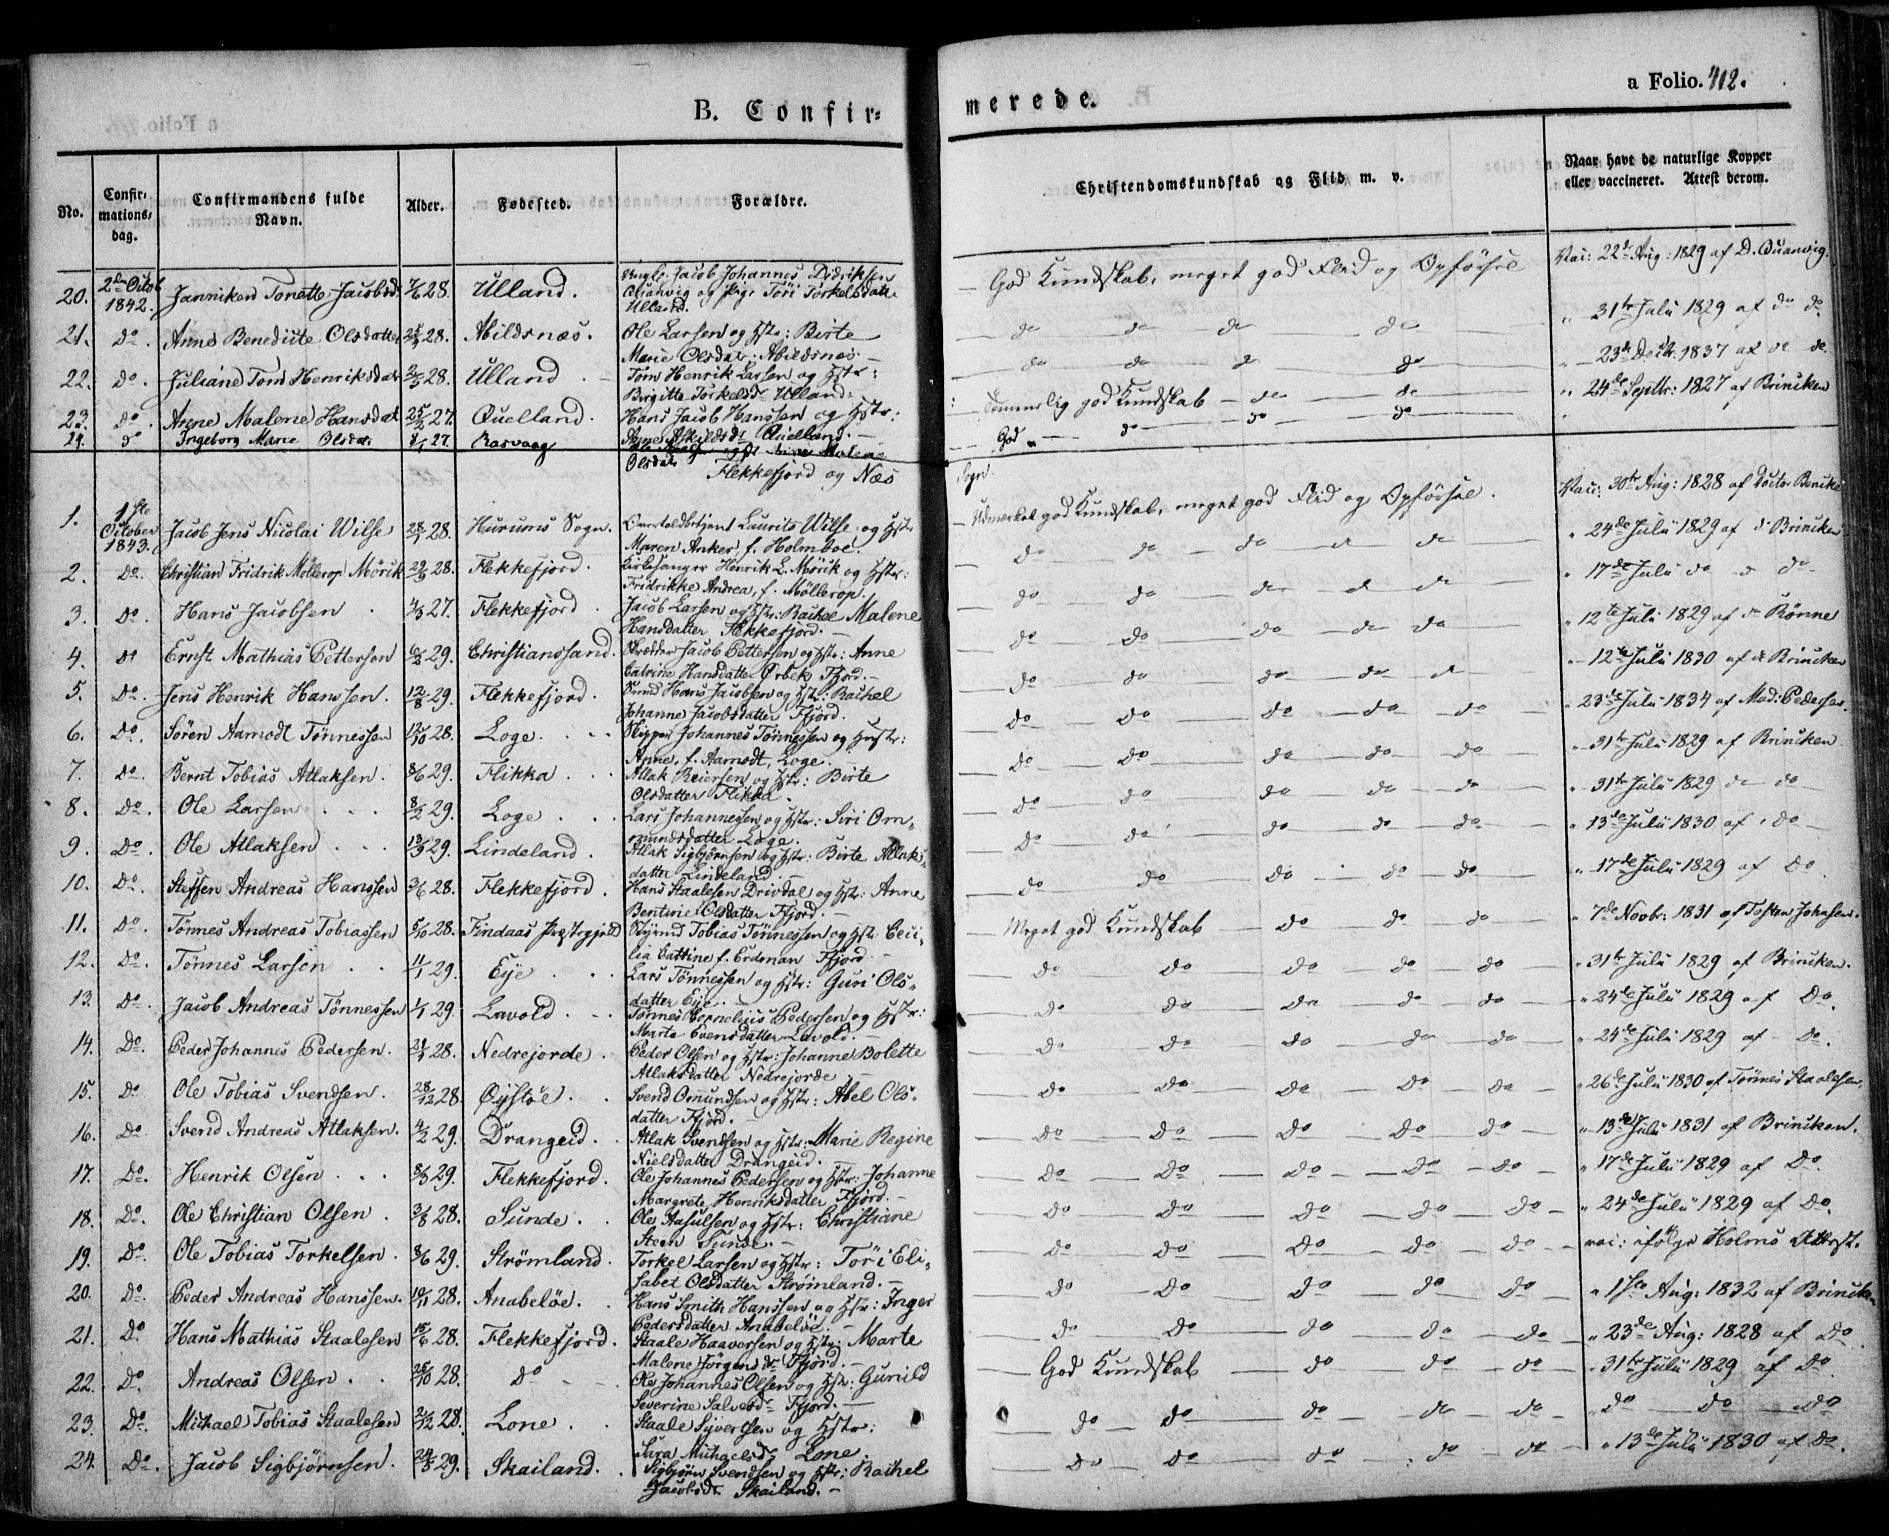 B. Confirmerede.
a Folio. 412.
No.
Confirmationsdag.
Confirmandens fulde Navn.
Alder.
Fødested.
Forældre.
Christendomskundskab og Flid m. v.
Naar havt de naturlige Kopper eller vaccineret. Attest derom.
20. 2den Octob 1842. Janniken Tonette Jacobsd 28. Ulland. Ungk. Jacob Johannes Didriksen
Qvanvig og Pige Töri Torkelsdatter
Ulland.
God Kundskab, meget god Flid og Opførsel Vac: 22de Aug: 1829 af D. Quanvig.
21. Do. Anne Benedicte Olsdatter 28. Abildsnæs. Ole Larsen og Hstr: Birte
Marie Olsdatr: Abildsnæs.
do do do do 31te Julii 1829 af do do
22. Do. Juliane Tom Henriksdatr 28. Ulland Tom Henrik Larsen og Hstr:
Birgitte Torkelsd. Ulland.
do do do do 23de Decbr. 1837 af do do
23. Do. Anne Malene Hansdatr 25/2 27. Quelland. Hans Jacob Hanssen og Hstr:
Anne Askildsdr Quelland.
Temmelig god Kundskab do do 24de Septbr: 1827 af Brincken
24. Do Ingeborg Marie Olsdatr 8/1 27. Rasvaag
Olsdatr
God do do do
Flekkefjord og Næs Sogn.
1. 1ste October 1843. Jacob Jens Nicolai Wilse 28. Hurums Sogn. Overtoldbetjent Laurits Wilse og Hstr
Maren Anker, f. Holmboe.
Udmærket god Kundskab, meget god Flid og Opførsel. Vac: 30te Aug: 1828 af Doctor
2. Do. Christian Fridrik Möllerop Mörik 28. Flekkefjord. Kirkesanger Henrik L. Mörik og Hstr:
Fridrikke Andrea, f. Möllerop.
do do do do do 24de Julii 1829 af Brincken
3. Do. Hans Jacobsen 4/3 27. Flekkefjord. Jacob Larsen og Hstr: Rachel Malene
Hansdatter Flekkefjord.
do do do do do 17de Julii do do
4. do Ernst Mathias Pettersen 6/2 29. Christianssand. Skrædder Jacob Pettersen og Hstr: Anne
Catrine Hansdatter Örbek Fjord.
do do do do do 12te Julii 1829 af Rönne
5. Do. Jens Henrik Hanssen. 12/8 29. Flekkefjord. Hans Jacobsen og Hstr: Rachel
Johanne Jacobsdatter Fjord.
do do do do do 12te Julii 1830 af Brincken
6. Do. Sören Aamodt Tönnessen 12/10 28. Loge. Skipper Johannes Tönnessen og Hustr:
Anne, f. Aamodt, Loge.
do do do do do 23de Julii 1834 af Mad: Pedersen.
7. Do. Bernt Tobias Atlaksen. 8/6 29. Flikka. Atlak Reiersen og Hstr: Birte
Olsdatter Flikka.
do do do do do 31te Julii 1829 af Brincken
8. Do. Ole Larsen 8/2 29. Loge. Lars Johannessen og Hstr: Siri Om-
mundsdatter Loge.
do do do do do 31te Julii 1829 do do
9. Do. Ole Atlaksen 13/3 29. Lindeland. Atlak Sigbjörnsen og Hstr: Birte Atlaks-
datter Lindeland.
do do do do do 13de Julii 1830 af do
10. Do. Steffen Andreas Hanssen 3/6 28. Flekkefjord. Hans Staalesen Drivdal og Hstr: Anne
Bentine Olsdatter Fjord.
do do do do do 17de Julii 1829 af Do
11. Do. Tönnes Andreas Tobiassen 5/10 28. Findaas Præstegjeld Tobias Tönnessen og Hstr: Ceci-
lia Cattine f. Erdman Fjord.
Meget god Kundskab do do do 7de Novbr: 1831 af Tosten Johnsen.
12. Do. Tönnes Larsen 11/1 29. Eye. Lars Tönnessen og Hstr: Guri Ols-
datter Eye.
do do do do do 31te Julii 1829 af Brincken.
13. Do. Jacob Andreas Tönnessen 1/1 29. Lavold. Tönnes Cornelius Pedersen og Hstr:
Marte Evensdatter Lavold.
do do do do do 24de Julii 1829 af Do.
14. Do. Peder Johannes Pedersen. 28. Nedrejorde. Peder Olsen og Hstr: Johanne Bolette
Atlaksdatter Nedrejorde
do do do do do 24de Julii 1829 af Do.
15. Do Ole Tobias Svendsen. 28/12 28. Öystöe. Svend Omundsen og Hstr: Abel Ols-
datter Fjord.
do do do do do 26de Julii 1830 af Tönnes Staalesen.
16. Do. Svend Andreas Atlaksen. 4/2 29. Drangeid. Atlak Svendsen og Hstr: Marie Regine
Nielsdatter Drangeid.
do do do do do 13de Julii 1831 af Brincken.
17. Do. Henrik Olsen 8/3 29. Flekkefjord. Ole Johannes Pedersen og Hstr: Johanne
Margrete Henriksdatter Fjord.
do do do do do 17de Julii 1829 af Do.
18. Do. Ole Christian Olsen. 3/8 28. Sunde. Ole Aasulsen og Hstr: Christiane
Steen Sunde.
do do do do do 24de Julii 1829 af Do.
19. Do. Ole Tobias Torkelsen. 8/6 29. Strömland. Torkel Larsen og Hstr: Töri Eli-
sabet Olsdatter Strömland.
do do do do do vac: ifölge Holms Attest.
20. Do. Peder Andreas Hanssen. 19/11 28. Anabelöe. Hans Smith Hanssen og Hstr: Inger
Pedersdatter Anabelöe.
do do do do do 1ste Aug: 1832 af Brincken
21. Do. Hans Mathias Staalesen 15/6 28. Flekkefjord. Staale Haaversen og Hstr: Marte
Malene Jörgensdr Fjord.
do do do do do 23de Aug: 1828 af Do
22. Do. Andreas Olsen. 25/10 28. Do Ole Johannes Olsen og Hstr: Gunild
Severine Salvesdr Fjord.
God Kundskab do do do 31te Julii 1829 af Do
23. Do. Michael Tobias Staalesen 2/12 28. Lone. Staale Syvertsen og Hstr:
Sara Michaelsdr Lone.
do do do do do do do do
24. Do. Jacob Sigbjörnsen. 24/3 29. Skailand. Sigbjörn Svendsen og Hstr: Rachel
Jacobsdr. Skailand.
do do do do do 13de Julii 1830 af Do.